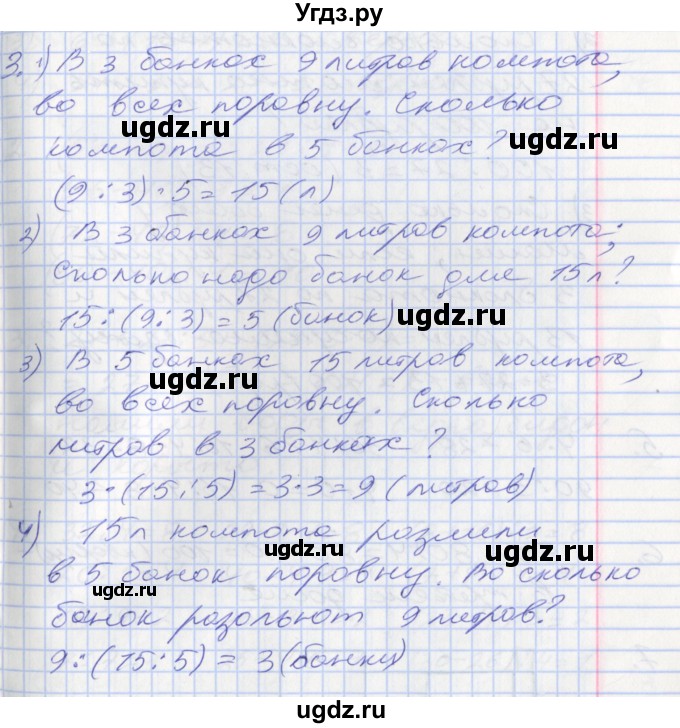 Угдз.ру
3. 1) В 3 банках 9 литров компота,
во всех поровну. Сколько
ugdz.ru ugdz.ru
компота в 5 банках?
(9 : 3) · 5 = 15 (л)
2) В 3 банках 9 литров компота;
ugdz.ru
Сколько надо банок для 15 л?
15 : (9 : 3) = 5 (банок)
ugdz.ru
3) В 5 банках 15 литров компота,
ugdz.ru
во всех поровну. Сколько
ugdz.ru
литров в 3 банках?
3 · (15 : 5) = 3 · 3 = 9 (литров)
4) 15 л компота разлили
ugdz.ru ugdz.ru
в 5 банок поровну. Во сколько
банок разольют 9 литров?
ugdz.ru
9 : (15 : 5) = 3 (банки)
ugdz.ru
Угдз.ру